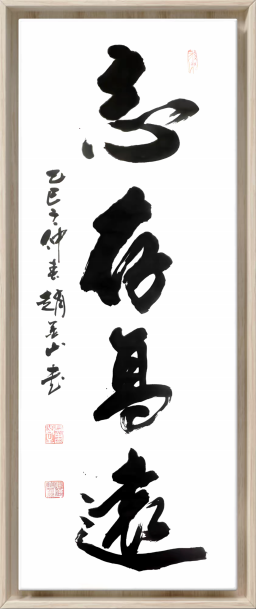 志存高遠
乙巳之仲春趙英山書